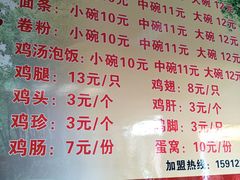 面条: 小碗10元 中碗11元 大碗12元
卷粉: 小碗10元 中碗11元 大碗12元
鸡汤泡饭: 小碗10元 中碗11元 大碗12元
鸡腿: 13元/只 鸡翅: 8元/只
鸡头: 3元/个 鸡肝: 3元/个
鸡珍: 3元/个 鸡脚: 3元/只
鸡肠: 7元/份 蛋窝: 10元/份
加盟热线: 15912